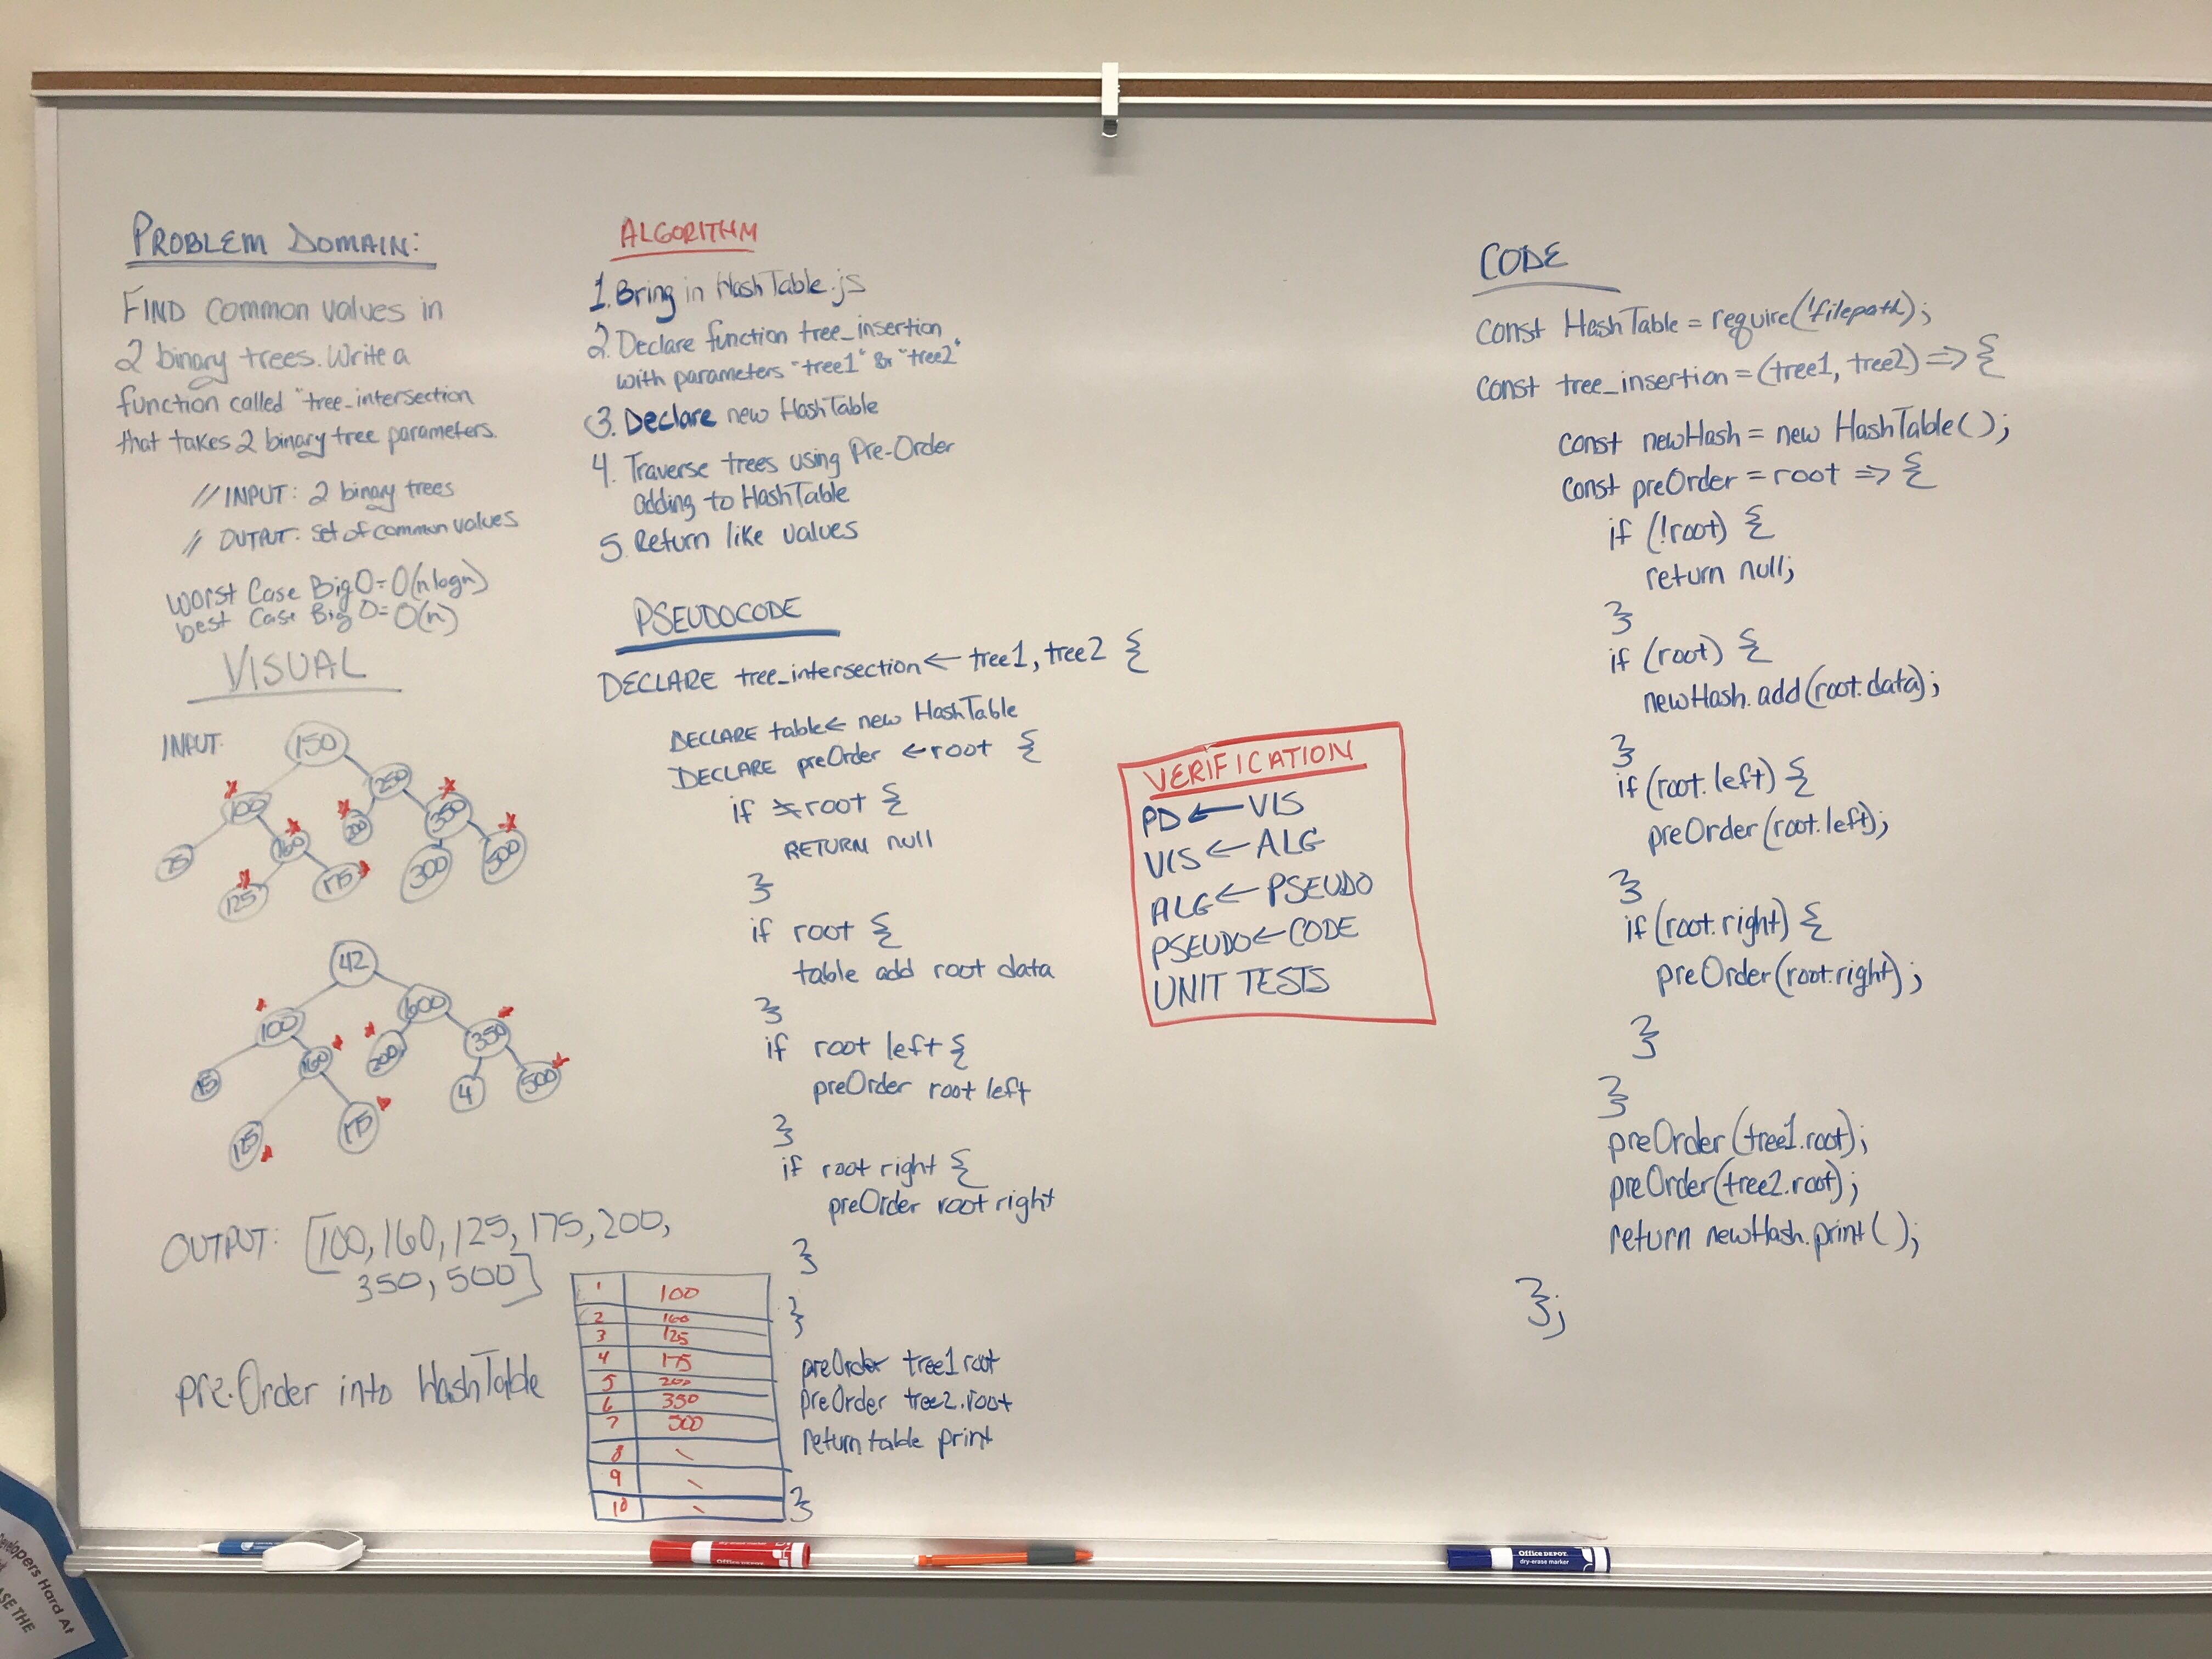 PROBLEM DOMAIN:
FIND common values in
2 binary trees. Write a
function called "tree_intersection
that takes 2 binary tree parameters.
// INPUT: 2 binary trees
// OUTPUT: set of common values
worst Case Big O = O(n logn)
best Case Big O = O(n)
VISUAL
INPUT:
150
100 250
75 160 200 350
125 175 300 500
42
100 600
15 160 200 350
125 175 4 500
OUTPUT: [100, 160, 125, 175, 200,
350, 500]
pre-Order into HashTable
1 100
2 160
3 125
4 175
5 200
6 350
7 500
8 \
9 \
10 \
ALGORITHM
1. Bring in HashTable.js
2. Declare function tree_insertion
with parameters "tree1" & "tree2"
3. Declare new HashTable
4. Traverse trees using Pre-Order
adding to HashTable
5. Return like values
PSEUDOCODE
DECLARE tree_intersection ← tree1, tree2 {
DECLARE table ← new HashTable
DECLARE preOrder ← root {
if ≠ root {
RETURN null
}
if root {
table add root data
}
if root left {
preOrder root left
}
if root right {
preOrder root right
}
}
preOrder tree1 root
preOrder tree2.root
return table print
}
VERIFICATION
PD ← VIS
VIS ← ALG
ALG ← PSEUDO
PSEUDO ← CODE
UNIT TESTS
CODE
const HashTable = require('filepath);
const tree_insertion = (tree1, tree2) => {
const newHash = new HashTable();
const preOrder = root => {
if (!root) {
return null;
}
if (root) {
newHash.add(root.data);
}
if (root.left) {
preOrder(root.left);
}
if (root.right) {
preOrder(root.right);
}
}
preOrder(tree1.root);
preOrder(tree2.root);
return newHash.print();
};
Office DEPOT
Office DEPOT
dry-erase marker
Developers Hard At
ASE THE